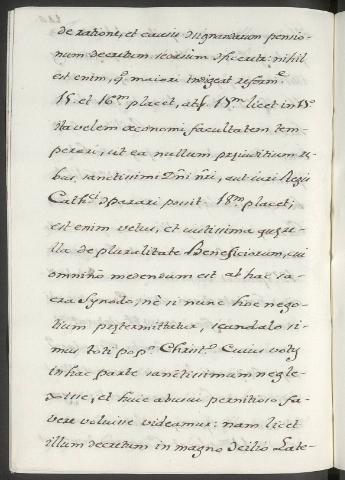 de ratione, et causis designandarum pensio-
num decretum seorsum fecerit: nihil
est enim, q̃ maiori indigeat reform.e
15. et 16.m placet, atq 17.m licet in 15.o
ita velem œconomi facultatem tem-
perari, ut ea nullum prejuditium re-
bus sanctissimi Dñi ñri, aut iuri Regis
Cath.ci parari possit 18.m placet;
est enim vetus, et iustissima quere-
lla de pluralitate Beneficiorum, cui
omnino medendum est ab hac sa-
cra Synodo, nē si nunc hoc nego-
tium prætermittatur, scandalo si-
mus toti pop.o Christ.o Cuius votis
in hac parte sanctissimum negle-
xisse, et huic abusui pernitioso fa-
vere voluisse videamur: nam licet
illum decretum in magno Ɔcilio Late-